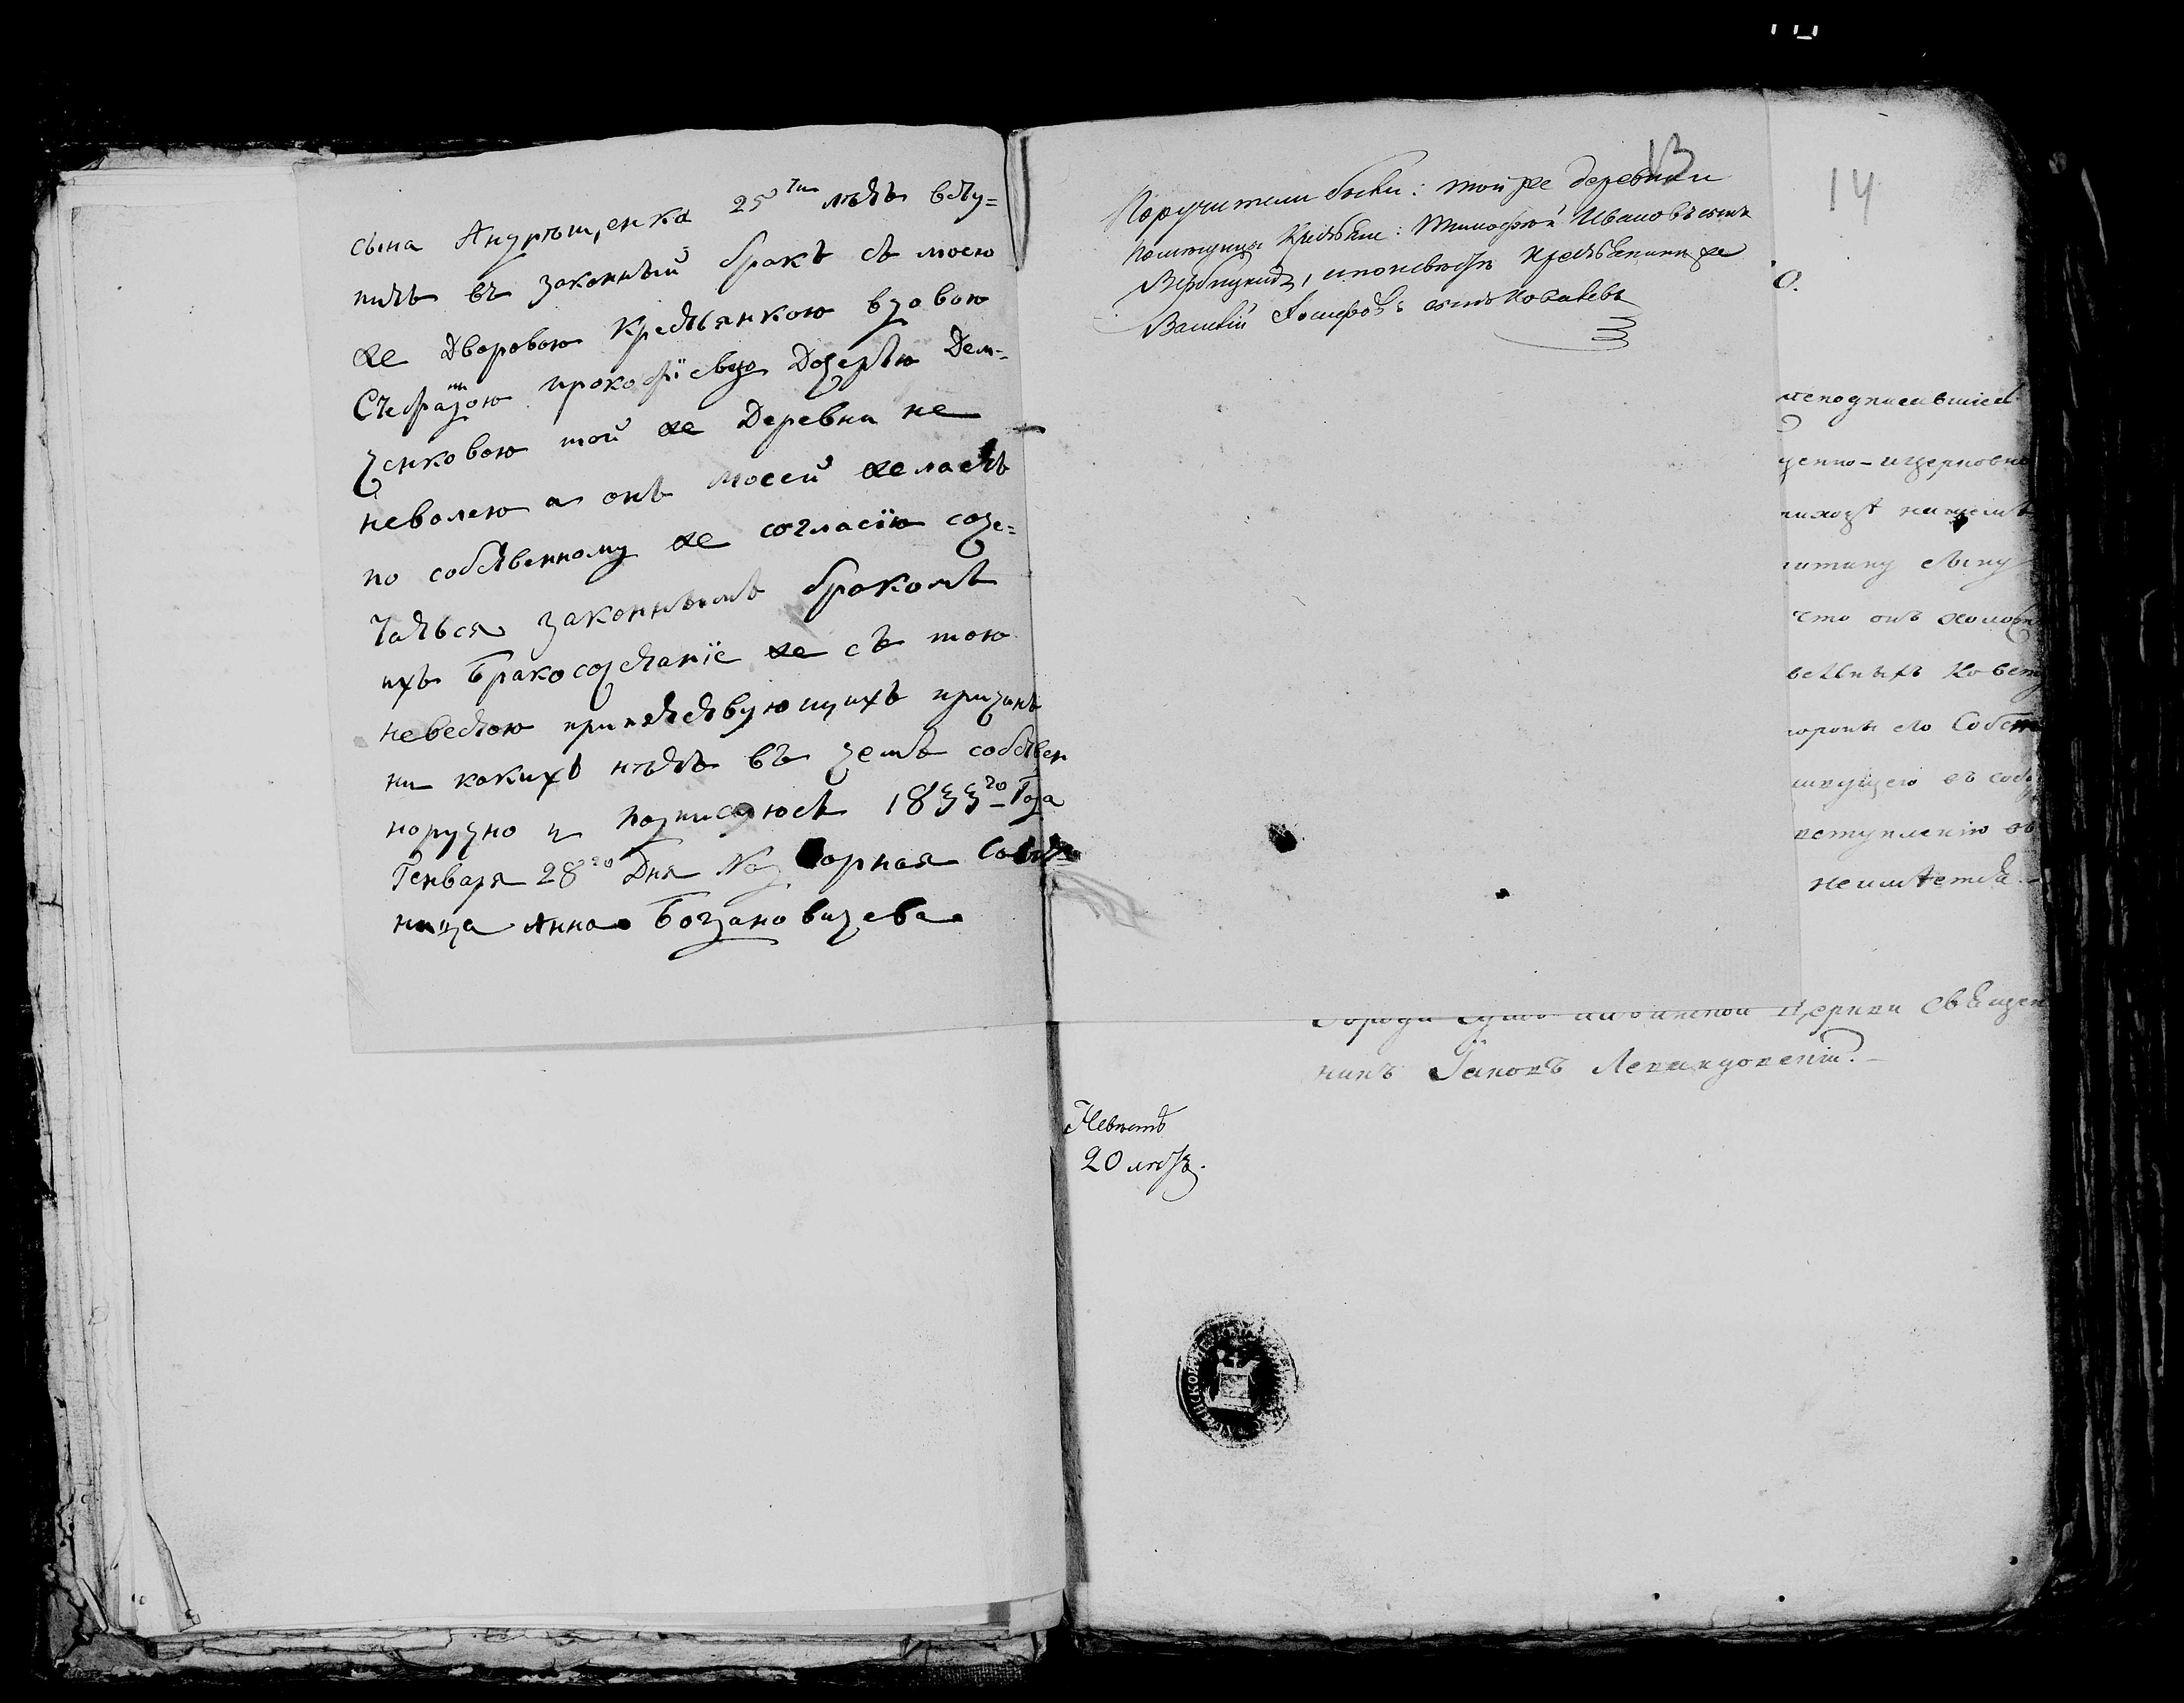 сына Андрѣищенка 25ти лѣтъ всту=
пить въ законный бракъ съ моею
же Дворовою Крестьянкою вдовою
Стефанидою прокофіевую Дочерью Дем-
ченковою той же Деревни не
неволею а онъ моеей желаетъ
по собственному же согласію соче=
таться законнымъ бракомъ
ихъ Бракосочетаніе же съ тою
невестою припятствующихъ причинъ
ни какихъ нѣтъ въ чемъ собствен
норучно и подписуюсь 1833го Года
Генваря 28го Дня Над ворная Совѣт
ница Анна Богдановичева
13
Поручители были: той же деревни
помещицы Крестьяне: Тимофей Ивановъ сынъ
Вербицкій, и по невѣстѣ Крестьянинъ же
Василій Іосифовъ сынъ Ковалевъ
14
о.
неподписавшіеся
ценно-и церковно
приходѣ нашемъ
сыну
что онъ холостъ
собст
вступленію въ
не имѣется.-
церкви Священ
никъ Іаковъ Левандовскій.-
Невѣстѣ
20 лѣтъ.